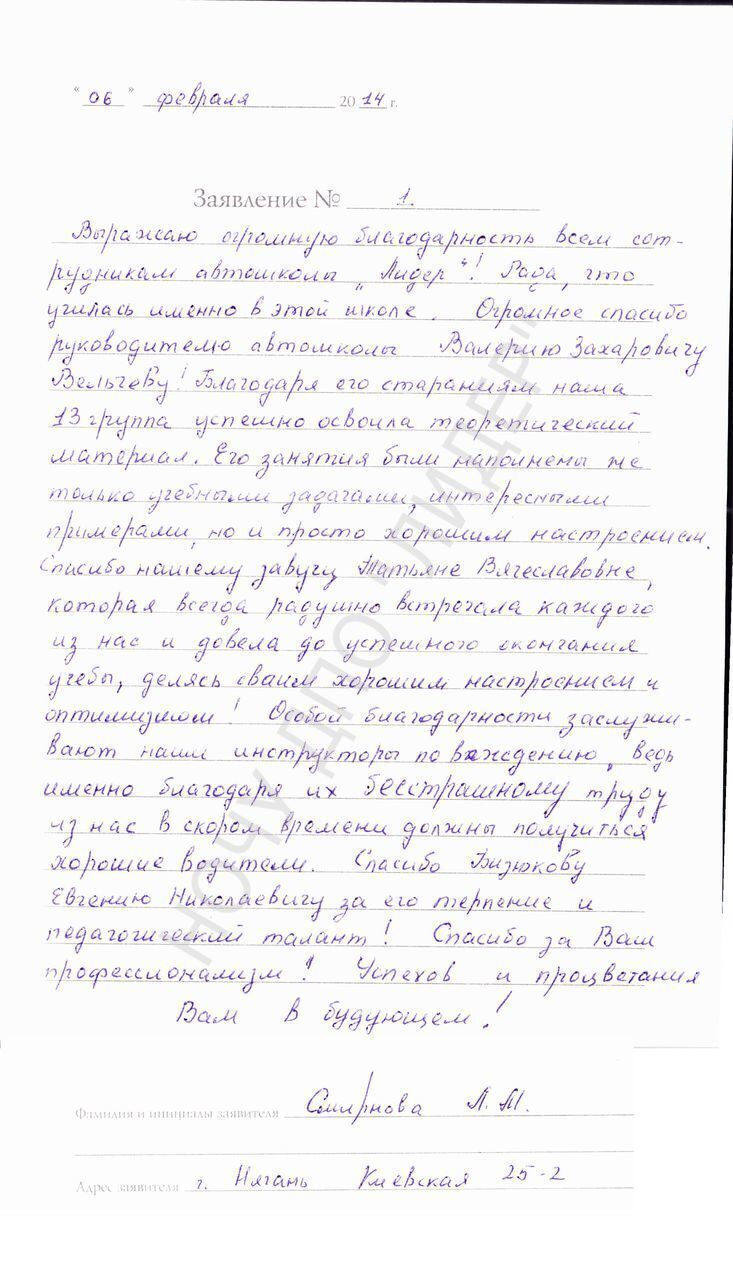 "06" февраля 2014 г.
Заявление № 1.
Выражаю огромную благодарность всем сот-
рудникам автошколы „Лидер"! Рада, что
училась именно в этой школе. Огромное спасибо
руководителю автошколы Валерию Захаровичу
Вельчеву! Благодаря его стараниям наша
13 группа успешно освоила теоретический
материал. Его занятия были наполнены не
только учебными задачами, интересными
примерами, но и просто хорошим настроением.
Спасибо нашему завучу Татьяне Вячеславовне,
которая всегда радушно встречала каждого
из нас и довела до успешного окончания
учебы, делясь своим хорошим настроением и
оптимизмом! Особой благодарности заслужи-
вают наши инструкторы по вождению, ведь
именно благодаря их бесстрашному труду
из нас в скором времени должны получиться
хорошие водители. Спасибо Бизюкову
Евгению Николаевичу за его терпение и
педагогический талант! Спасибо за Ваш
профессионализм! Успехов и процветания
Вам в будующем!
Фамилия и инициалы заявителя Смирнова Л.М.
Адрес заявителя г. Нягань Киевская 25-2
НОЧУ ДПО "ЛИДЕР"